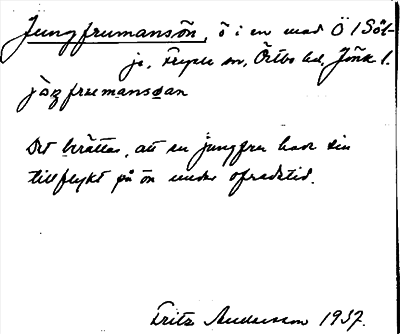 Jungfrumansön, ö i en mad Ö / Söl-
je, Fryele sn, Östbo hd, Jönk l.
jåŋfrumansøan
Det berättas, att en jungfru hade sin
tillflykt på ön under ofredstid.
Fritz Andersson 1937.